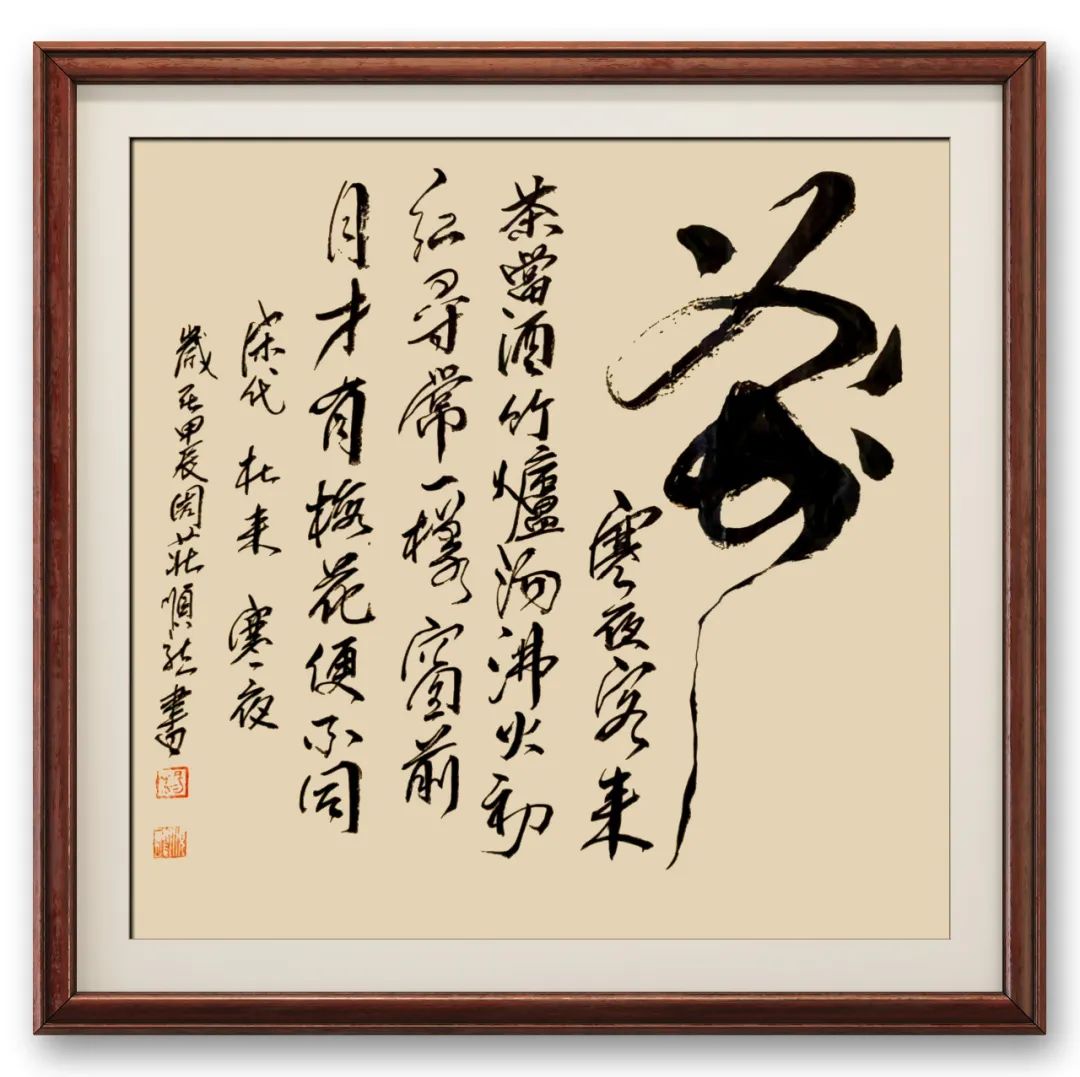 寒夜客来
茶當酒竹爐湯沸火初
红尋常一樣窗前
月才有梅花便不同
宋代 杜来 寒夜
歲在甲辰周莊順龍書